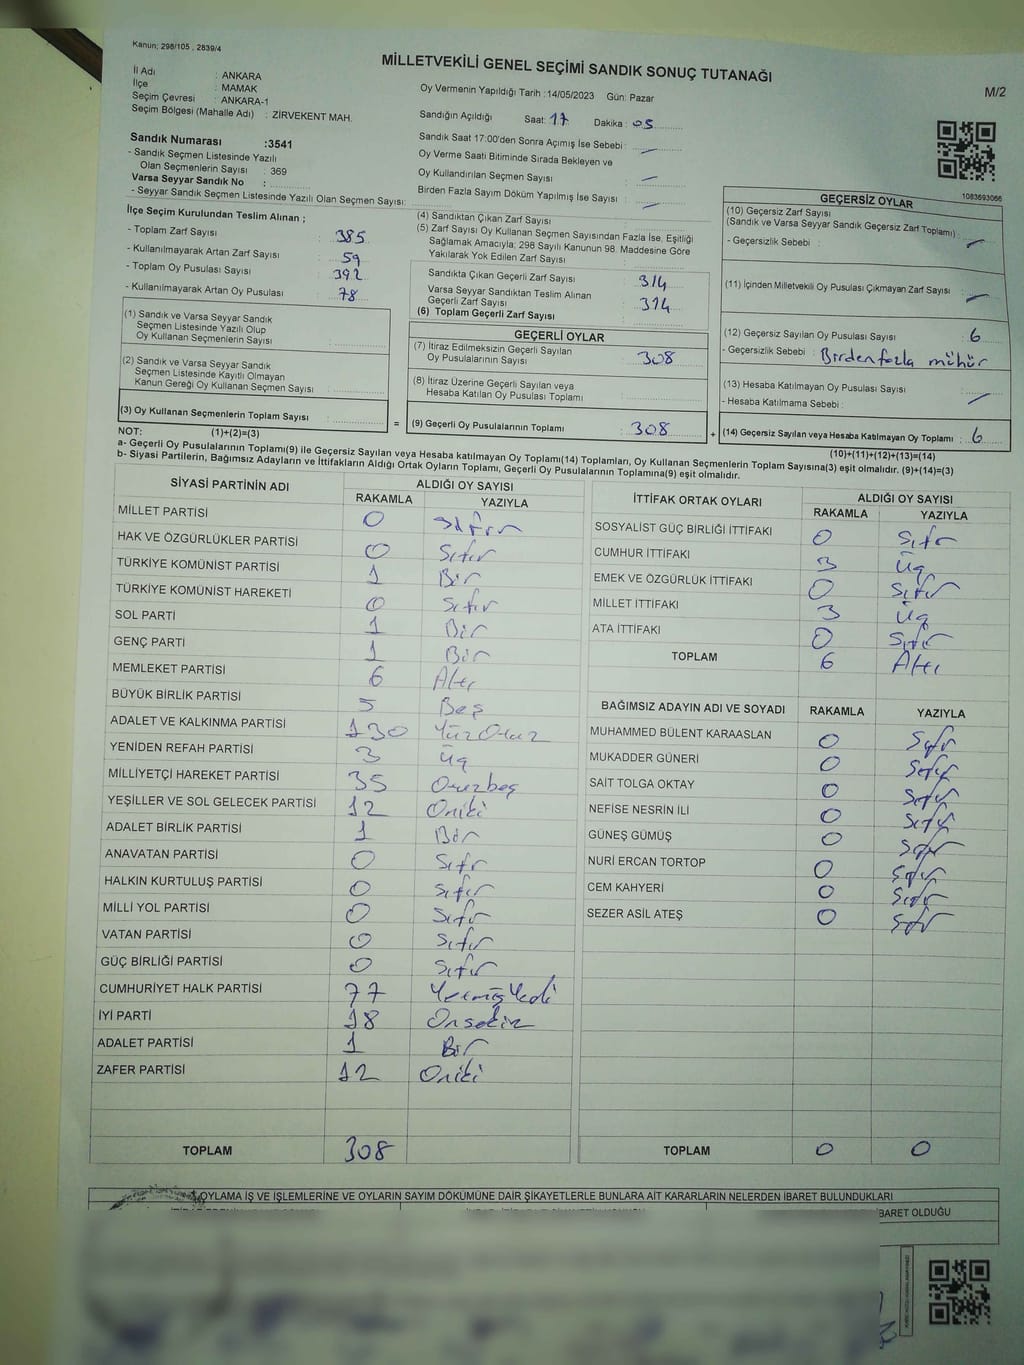 Kanun; 298/105 , 2839/4
MİLLETVEKİLİ GENEL SEÇİMİ SANDIK SONUÇ TUTANAĞI
M/2
İl Adı : ANKARA
İlçe : MAMAK
Seçim Çevresi : ANKARA-1
Seçim Bölgesi (Mahalle Adı) : ZİRVEKENT MAH.
Oy Vermenin Yapıldığı Tarih :14/05/2023 Gün: Pazar
Sandığın Açıldığı Saat: 17 Dakika : 05
Sandık Saat 17:00'den Sonra Açımış İse Sebebi : —
Oy Verme Saati Bitiminde Sırada Bekleyen ve
Oy Kullandırılan Seçmen Sayısı : —
Birden Fazla Sayım Döküm Yapılmış İse Sayısı : —
Sandık Numarası :3541
- Sandık Seçmen Listesinde Yazılı
Olan Seçmenlerin Sayısı : 369
Varsa Seyyar Sandık No :
- Seyyar Sandık Seçmen Listesinde Yazılı Olan Seçmen Sayısı:
İlçe Seçim Kurulundan Teslim Alınan ;
- Toplam Zarf Sayısı : 385
- Kullanılmayarak Artan Zarf Sayısı : 59
- Toplam Oy Pusulası Sayısı : 392
- Kullanılmayarak Artan Oy Pusulası : 78
(1) Sandık ve Varsa Seyyar Sandık
Seçmen Listesinde Yazılı Olup
Oy Kullanan Seçmenlerin Sayısı :
(2) Sandık ve Varsa Seyyar Sandık
Seçmen Listesinde Kayıtlı Olmayan
Kanun Gereği Oy Kullanan Seçmen Sayısı :
(3) Oy Kullanan Seçmenlerin Toplam Sayısı :
(4) Sandıktan Çıkan Zarf Sayısı :
(5) Zarf Sayısı Oy Kullanan Seçmen Sayısından Fazla İse, Eşitliği
Sağlamak Amacıyla; 298 Sayılı Kanunun 98. Maddesine Göre
Yakılarak Yok Edilen Zarf Sayısı :
Sandıkta Çıkan Geçerli Zarf Sayısı : 314
Varsa Seyyar Sandıktan Teslim Alınan
Geçerli Zarf Sayısı : 314
(6) Toplam Geçerli Zarf Sayısı :
GEÇERLİ OYLAR
(7) İtiraz Edilmeksizin Geçerli Sayılan
Oy Pusulalarının Sayısı : 308
(8) İtiraz Üzerine Geçerli Sayılan veya
Hesaba Katılan Oy Pusulası Toplamı :
= (9) Geçerli Oy Pusulalarının Toplamı : 308
1083693066
GEÇERSİZ OYLAR
(10) Geçersiz Zarf Sayısı
(Sandık ve Varsa Seyyar Sandık Geçersiz Zarf Toplamı) :
- Geçersizlik Sebebi : —
(11) İçinden Milletvekili Oy Pusulası Çıkmayan Zarf Sayısı : —
(12) Geçersiz Sayılan Oy Pusulası Sayısı : 6
- Geçersizlik Sebebi : Birden fazla mühür
(13) Hesaba Katılmayan Oy Pusulası Sayısı :
- Hesaba Katılmama Sebebi : —
+ (14) Geçersiz Sayılan veya Hesaba Katılmayan Oy Toplamı : 6
NOT: (1)+(2)=(3)
(10)+(11)+(12)+(13)=(14)
a- Geçerli Oy Pusulalarının Toplamı(9) ile Geçersiz Sayılan veya Hesaba katılmayan Oy Toplamı(14) Toplamları, Oy Kullanan Seçmenlerin Toplam Sayısına(3) eşit olmalıdır. (9)+(14)=(3)
b- Siyasi Partilerin, Bağımsız Adayların ve İttifakların Aldığı Ortak Oyların Toplamı, Geçerli Oy Pusulalarının Toplamına(9) eşit olmalıdır.
SİYASİ PARTİNİN ADI ALDIĞI OY SAYISI
RAKAMLA YAZIYLA
MİLLET PARTİSİ 0 Sıfır
HAK VE ÖZGÜRLÜKLER PARTİSİ 0 Sıfır
TÜRKİYE KOMÜNİST PARTİSİ 1 Bir
TÜRKİYE KOMÜNİST HAREKETİ 0 Sıfır
SOL PARTİ 1 Bir
GENÇ PARTİ 1 Bir
MEMLEKET PARTİSİ 6 Altı
BÜYÜK BİRLİK PARTİSİ 5 Beş
ADALET VE KALKINMA PARTİSİ 130 Yüz Otuz
YENİDEN REFAH PARTİSİ 3 Üç
MİLLİYETÇİ HAREKET PARTİSİ 35 Otuzbeş
YEŞİLLER VE SOL GELECEK PARTİSİ 12 Oniki
ADALET BİRLİK PARTİSİ 1 Bir
ANAVATAN PARTİSİ 0 Sıfır
HALKIN KURTULUŞ PARTİSİ 0 Sıfır
MİLLİ YOL PARTİSİ 0 Sıfır
VATAN PARTİSİ 0 Sıfır
GÜÇ BİRLİĞİ PARTİSİ 0 Sıfır
CUMHURİYET HALK PARTİSİ 77 Yetmiş Yedi
İYİ PARTİ 18 Onsekiz
ADALET PARTİSİ 1 Bir
ZAFER PARTİSİ 12 Oniki
TOPLAM 308
İTTİFAK ORTAK OYLARI ALDIĞI OY SAYISI
RAKAMLA YAZIYLA
SOSYALİST GÜÇ BİRLİĞİ İTTİFAKI 0 Sıfır
CUMHUR İTTİFAKI 3 Üç
EMEK VE ÖZGÜRLÜK İTTİFAKI 0 Sıfır
MİLLET İTTİFAKI 3 Üç
ATA İTTİFAKI 0 Sıfır
TOPLAM 6 Altı
BAĞIMSIZ ADAYIN ADI VE SOYADI RAKAMLA YAZIYLA
MUHAMMED BÜLENT KARAASLAN 0 Sıfır
MUKADDER GÜNERİ 0 Sıfır
SAİT TOLGA OKTAY 0 Sıfır
NEFİSE NESRİN İLİ 0 Sıfır
GÜNEŞ GÜMÜŞ 0 Sıfır
NURİ ERCAN TORTOP 0 Sıfır
CEM KAHYERİ 0 Sıfır
SEZER ASİL ATEŞ 0 Sıfır
TOPLAM 0 0
OYLAMA İŞ VE İŞLEMLERİNE VE OYLARIN SAYIM DÖKÜMÜNE DAİR ŞİKAYETLERLE BUNLARA AİT KARARLARIN NELERDEN İBARET BULUNDUKLARI
BARET OLDUĞU